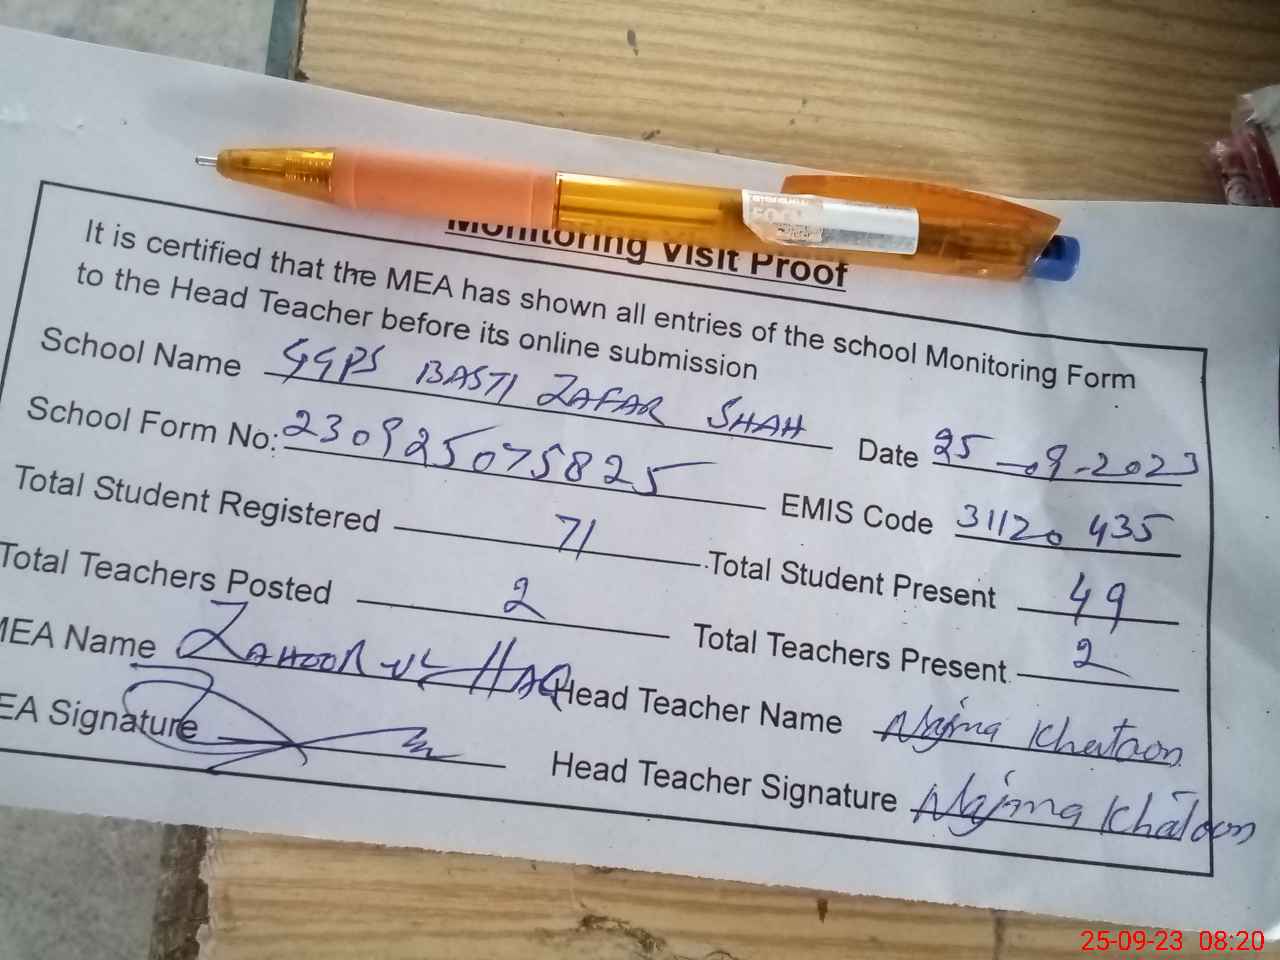 Monitoring Visit Proof
It is certified that the MEA has shown all entries of the school Monitoring Form
to the Head Teacher before its online submission
School Name GGPS BASTI ZAFAR SHAH
Date 25-09-2023
School Form No: 230925075825
EMIS Code 31120 435
Total Student Registered 71
Total Student Present 49
Total Teachers Posted 2
Total Teachers Present 2
MEA Name ZAHOOR UL HAQ
Head Teacher Name Najma Khatoon
EA Signature
Head Teacher Signature Najma Khatoon
25-09-23 08:20